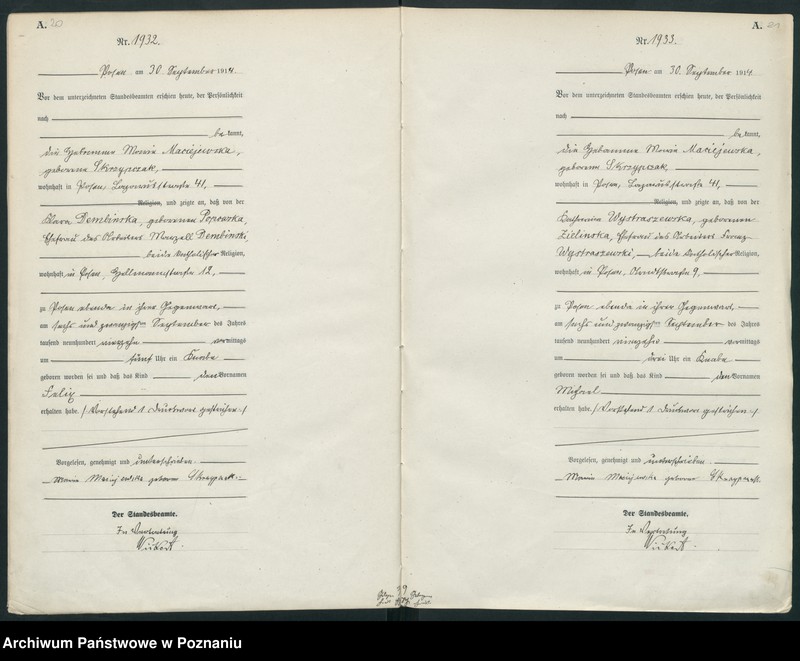 A. 20
Nr. 1932.
Posen am 30 September 1914.
Vor dem unterzeichneten Standesbeamten erschien heute, der Persönlichkeit
nach
be kannt,
die Hebamme Maria Maciejewska,
geborene Skrzypczak,
wohnhaft in Posen, Lazarusstraße 41,
Religion, und zeigte an, daß von der
Klara Dembinska, geborenen Popowska,
Ehefrau des Arbeiters Marzell Dembinski,
beide katholischer Religion,
wohnhaft in Posen, 12,
zu Posen ebenda in ihrer Gegenwart,
am sechs und zwanzigsten September des Jahres
tausend neunhundert vierzehn vormittags
um fünf Uhr ein Knabe
geboren worden sei und daß das Kind den Vornamen
Felix
erhalten habe. / Vorstehend 1 Druckwort gestrichen. /
Vorgelesen, genehmigt und unterschrieben
Maria Maciejewska geborene Skrzypczak.
Der Standesbeamte.
In Vertretung
A.
Nr. 1933.
Posen am 30. September 1914.
Vor dem unterzeichneten Standesbeamten erschien heute, der Persönlichkeit
nach
be kannt,
die Hebamme Maria Maciejewska,
geborene Skrzypczak,
wohnhaft in Posen, Lazarusstraße 41,
Religion, und zeigte an, daß von der
Katharina Wystraszewska, geborenen
Zielinska, Ehefrau des Arbeiters Franz
Wystraszewski, beide katholischer Religion,
wohnhaft in Posen, 9,
zu Posen ebenda in ihrer Gegenwart,
am sechs und zwanzigsten September des Jahres
tausend neunhundert vierzehn vormittags
um drei Uhr ein Knabe
geboren worden sei und daß das Kind den Vornamen
Michael
erhalten habe. / Vorstehend 1 Druckwort gestrichen. /
Vorgelesen, genehmigt und unterschrieben
Maria Maciejewska geborene Skrzypczak.
Der Standesbeamte.
In Vertretung
Archiwum Państwowe w Poznaniu